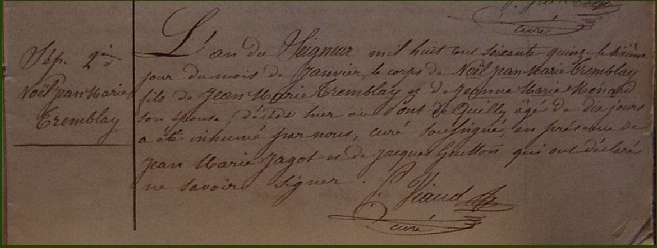 curé
Sép. 2ième
Noël Jean Marie
Tremblay
L'an du Seigneur mil huit cent soixante quinze, le dixième
jour du mois de Janvier, le corps de Noël Jean Marie Tremblay
fils de Jean Marie Tremblay et de Jeanne Marie Ménard
son épouse, décédé hier au Pont de Quilly âgé de dix jours
a été inhumé par nous, curé soussigné, en présence de
Jean Marie Jagot et de Jacques Guitton qui ont déclaré
ne savoir signer.
P. Viaud
curé